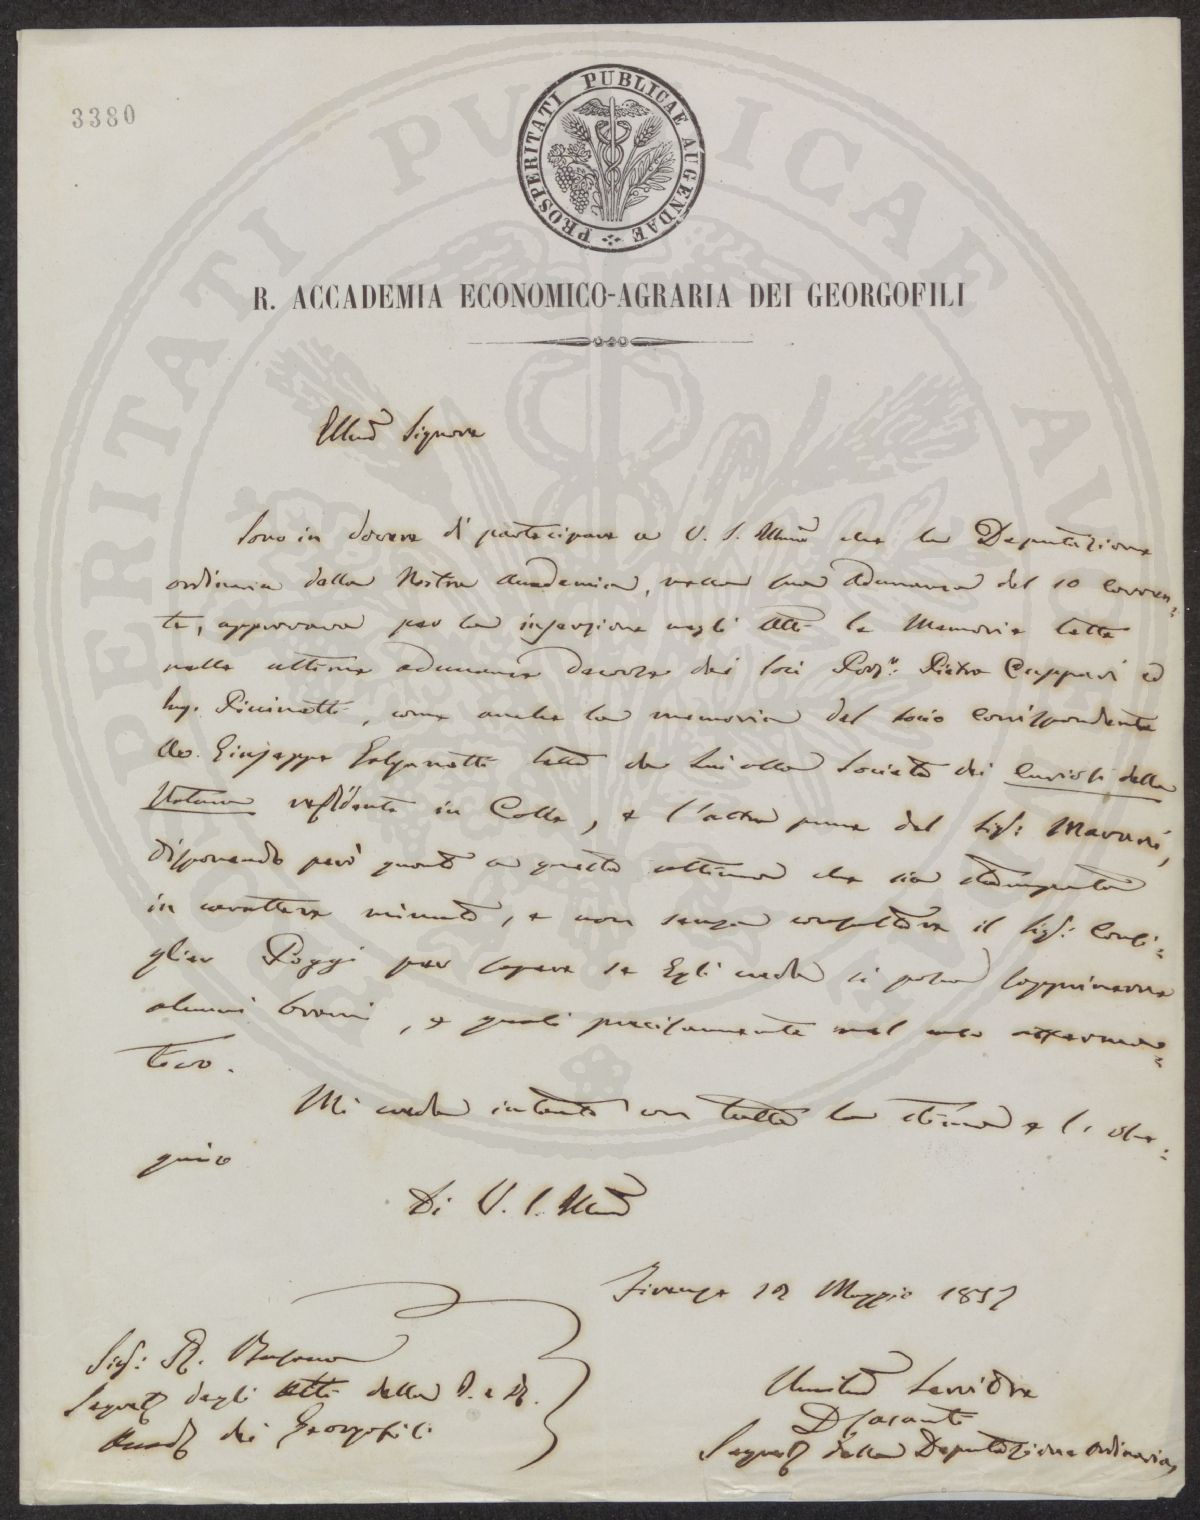 3380
PROSPERITATI PUBLICAE AUGENDAE
R. ACCADEMIA ECONOMICO-AGRARIA DEI GEORGOFILI
Illmo Signore
Sono in dovere di partecipare a V. S. Illma che la Deputazione
ordinaria della Nostra Accademia, nella sua Adunanza del 10 Corren=
te, approvava per la inserzione negli Atti le Memorie lette
nella ultima adunanza decorsa dei Soci Profr. Pietro Cuppari ed
Ing. , come anche la memoria del socio Corrispondente
Giuseppe letta da lui alla Società dei Curiosi della
Natura residente in Colle, e l'altra pure del Sigr:
disponendo però quanto a questa ultima che sia stampata
in carattere minuto, e non senza consultare il Sigr: Consi=
glier Poggi per sapere se Egli creda si possa sopprimerne
alcuni brani, e quali precisamente nel caso afferma=
tivo.
Mi creda intanto con tutta la stima e l'osse=
quio
Di V. S. Illma
Firenze 12 Maggio 1857
Sigr: R.
Segret. degli Atti della I. e R.
Accad. dei Georgofili
Umilmo Servitore
Segret. della Deputazione ordinaria